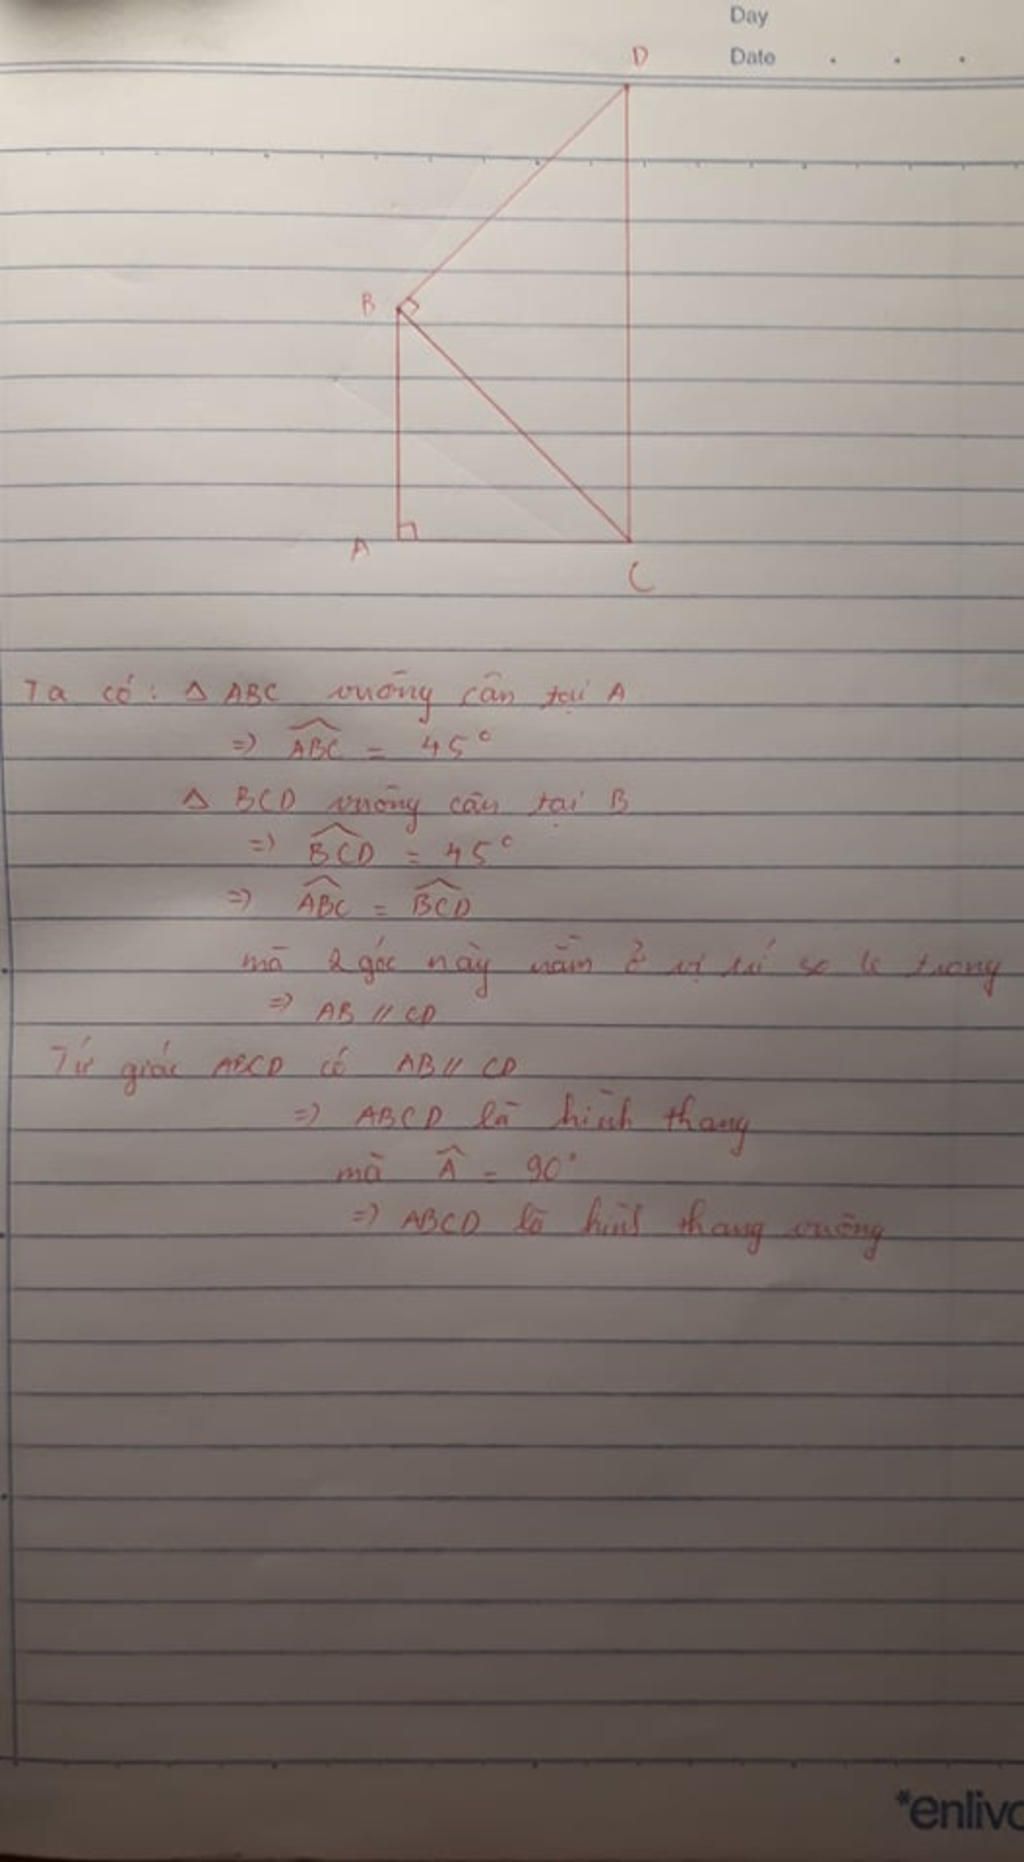 Day
Date
D
B
A
C
Ta có: Δ ABC vuông cân tại A
=> ABC = 45°
Δ BCD vuông cân tại B
=> BCD = 45°
=> ABC = BCD
mà 2 góc này nằm ở vị trí so le trong
=> AB // CD
Tứ giác ABCD có AB // CD
=> ABCD là hình thang
mà A = 90°
=> ABCD là hình thang vuông
*enlivo